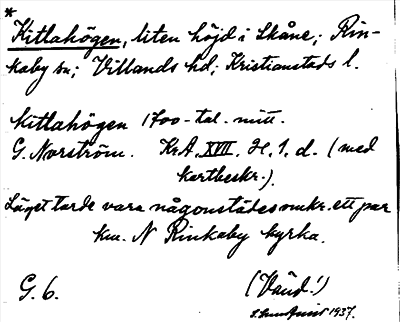 *
Kitlahögen, liten höjd i Skåne; Rin-
kaby sn; Villands hd; Kristianstads l.
Kitlahögen 1700-tal. mitt.
G. Norström. KrA. XVII. H. 1. d. (med
kartbeskr.).
Läget torde vara någonstädes omkr. ett par
km. N Rinkaby kyrka.
G. 6. (Vand!)
1937.